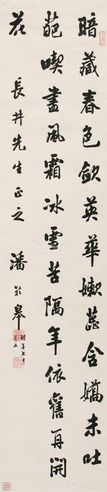 暗藏春色欲英華嫩蕊含嬌未吐
葩喫盡風霜冰雪苦隔年依舊再開
花
長井先生正之
潘齡皋
時年七十